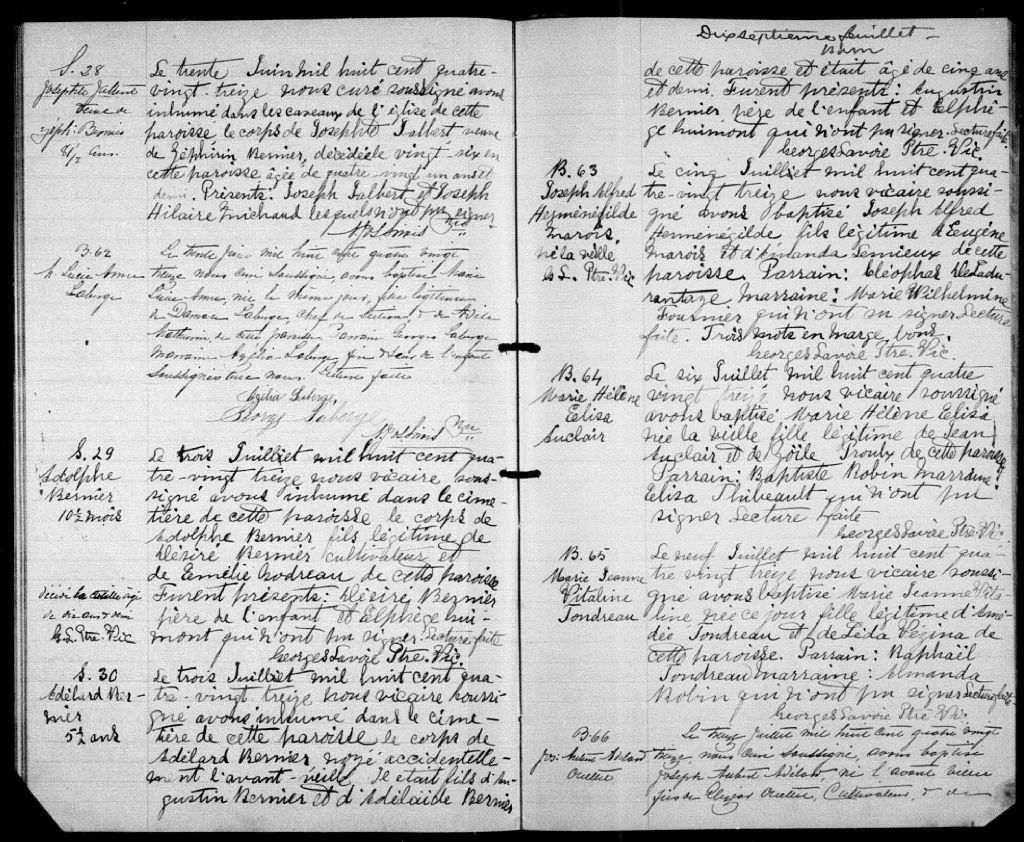 S. 28
Josephte Jalbert
veuve de
Zéph. Bernier
81 1/2 ans.
Le trente Juin mil huit cent quatre-
vingt treize nous curé soussigné avons
inhumé dans les caveaux de l'église de cette
paroisse le corps de Josephte Jalbert veuve
de Zéphirin Bernier, décédée le vingt-six en
cette paroisse âgée de quatre vingt un ans et
demi. Présents: Joseph Jalbert et Joseph
Hilaire Michaud lesquels n'ont pu signer
B. 62
M. Lucie Anna
Laberge
Le trente Juin mil huit cent quatre vingt
treize nous curé soussigné avons baptisé Marie
Lucie Anna, née le même jour, fille légitime
de Damase Laberge, chef de section, & de
de cette paroisse Parrain Georges Laberge
Marraine Azélia Laberge, de l'enfant
soussignés avec nous. Lecture faite
Azélia Laberge,
George Laberge
S. 29
Adolphe
Bernier
10 1/2 mois
Le trois Juilliet mil huit cent qua-
tre-vingt treize nous vicaire sous-
signé avons inhumé dans le cime-
tière de cette paroisse le corps de
Adolphe Bernier fils légitime de
Désiré Bernier cultivateur et
de Emélie Nodreau de cette paroisse
décédé la veille âgé
de dix mois & demi
G. L. Ptre. Vic
Furent présents: Désiré Bernier
père de l'enfant et Elphège Hui-
mont qui n'ont pu signer. Lecture faite
Georges Savoie Ptre. Vic.
S. 30
Adélard Ber-
nier
5 1/2 ans
Le trois Juilliet mil huit cent qua-
tre-vingt treize nous vicaire soussi-
gné avons inhumé dans le cime-
tière de cette paroisse le corps de
Adélard Bernier noyé accidentelle-
ment l'avant-veille. Il était fils d'Au-
gustin Bernier et d'Adélaïde Bernier
Dixseptième feuillet
de cette paroisse et était âgé de cinq ans
et demi. Furent présents: Augustin
Bernier père de l'enfant et Elphè-
ge Huimont qui n'ont pu signer. Lecture faite.
Georges Savoie Ptre. Vic.
B. 63
Joseph Alfred
Herménégilde
Marois.
né la veille
G. S. Ptre. Vic
Le cinq Juilliet mil huit cent qua-
tre-vingt treize nous vicaire soussi-
gné avons baptisé Joseph Alfred
Herménégilde fils légitime d'Eugène
Marois et d'Amanda Lemieux de cette
paroisse. Parrain: Cléophas de Ladu-
rantaye Marraine: Marie Wilhelmine
Fournier qui n'ont su signer. Lecture
faite. Trois mots en marge bons.
Georges Savoie Ptre. Vic.
B. 64
Marie Hélène
Elisa
Auclair
Le six Juillet mil huit cent quatre
vingt treize nous vicaire soussigné
avons baptisé Marie Hélène Elisa
née la veille fille légitime de Jean
Auclair et de Zoïle Proulx de cette paroisse
Parrain: Baptiste Robin Marraine:
Elisa Thibeault qui n'ont pu
signer Lecture faite
Georges Savoie Ptre. Vic.
B. 65
Marie Jeanne
Vitaline
Tondreau
Le neuf Juillet mil huit cent qua-
tre vingt treize nous vicaire soussi-
gné avons baptisé Marie Jeanne Vita-
line née ce jour fille légitime d'Amé-
dée Tondreau et de Léda Vézina de
cette paroisse. Parrain: Raphaël
Tondreau marraine: Almanda
Robin qui n'ont pu signer Lecture faite
Georges Savoie Ptre. Vic.
B. 66
Jos. Aubert Adélard
Ouellet
Le treize Juillet mil huit cent quatre vingt
treize, nous curé soussigné, avons baptisé
Joseph Aubert Adélard né l'avant veille
fils de Elzéar Ouellet, Cultivateur, & de